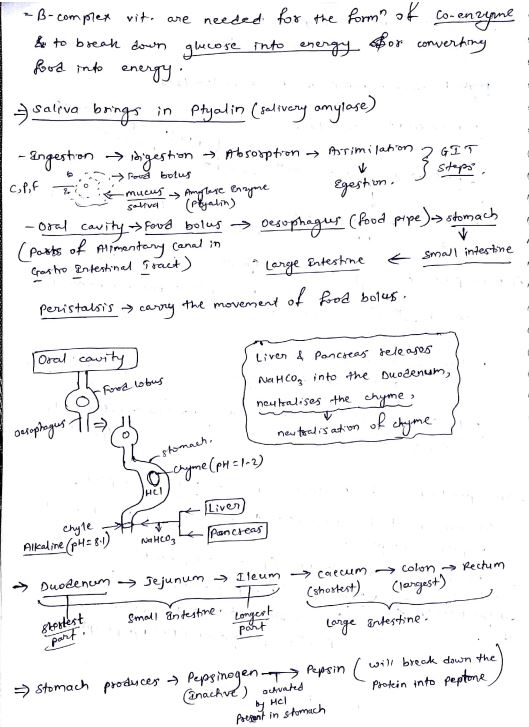 - B-complex vit. are needed for the formⁿ of co-enzyme
& to break down glucose into energy for converting
food into energy.
⇒ Saliva brings in Ptyalin (salivary amylase)
- Ingestion → Digestion → Absorption → Assimilation } GIT
↓ Egestion. Steps.
→ Food bolus
C, P, F
mucus → Amylase Enzyme
saliva (Ptyalin)
- Oral cavity → Food bolus → Oesophagus (food pipe) → stomach
(Parts of Alimentary canal in ↓
Gastro Intestinal Tract) Large Intestine ← Small intestine
Peristalsis → carry the movement of food bolus.
Oral cavity
Food lobus
Oesophagus ⇒
stomach.
chyme (pH = 1-2)
HCl
Liver
Pancreas
NaHCO₃
chyle
Alkaline (pH = 8.1)
Liver & Pancreas releases
NaHCO₃ into the Duodenum,
neutralises the chyme,
↓
neutralisation of chyme
→ Duodenum → Jejunum → Ileum → Caecum → Colon → Rectum
(shortest) (largest)
Shortest part. Small Intestine. Longest part Large Intestine.
⇒ Stomach produces → Pepsinogen → Pepsin ( will break down the
(inactive) activated Protein into peptone)
by HCl
Present in stomach